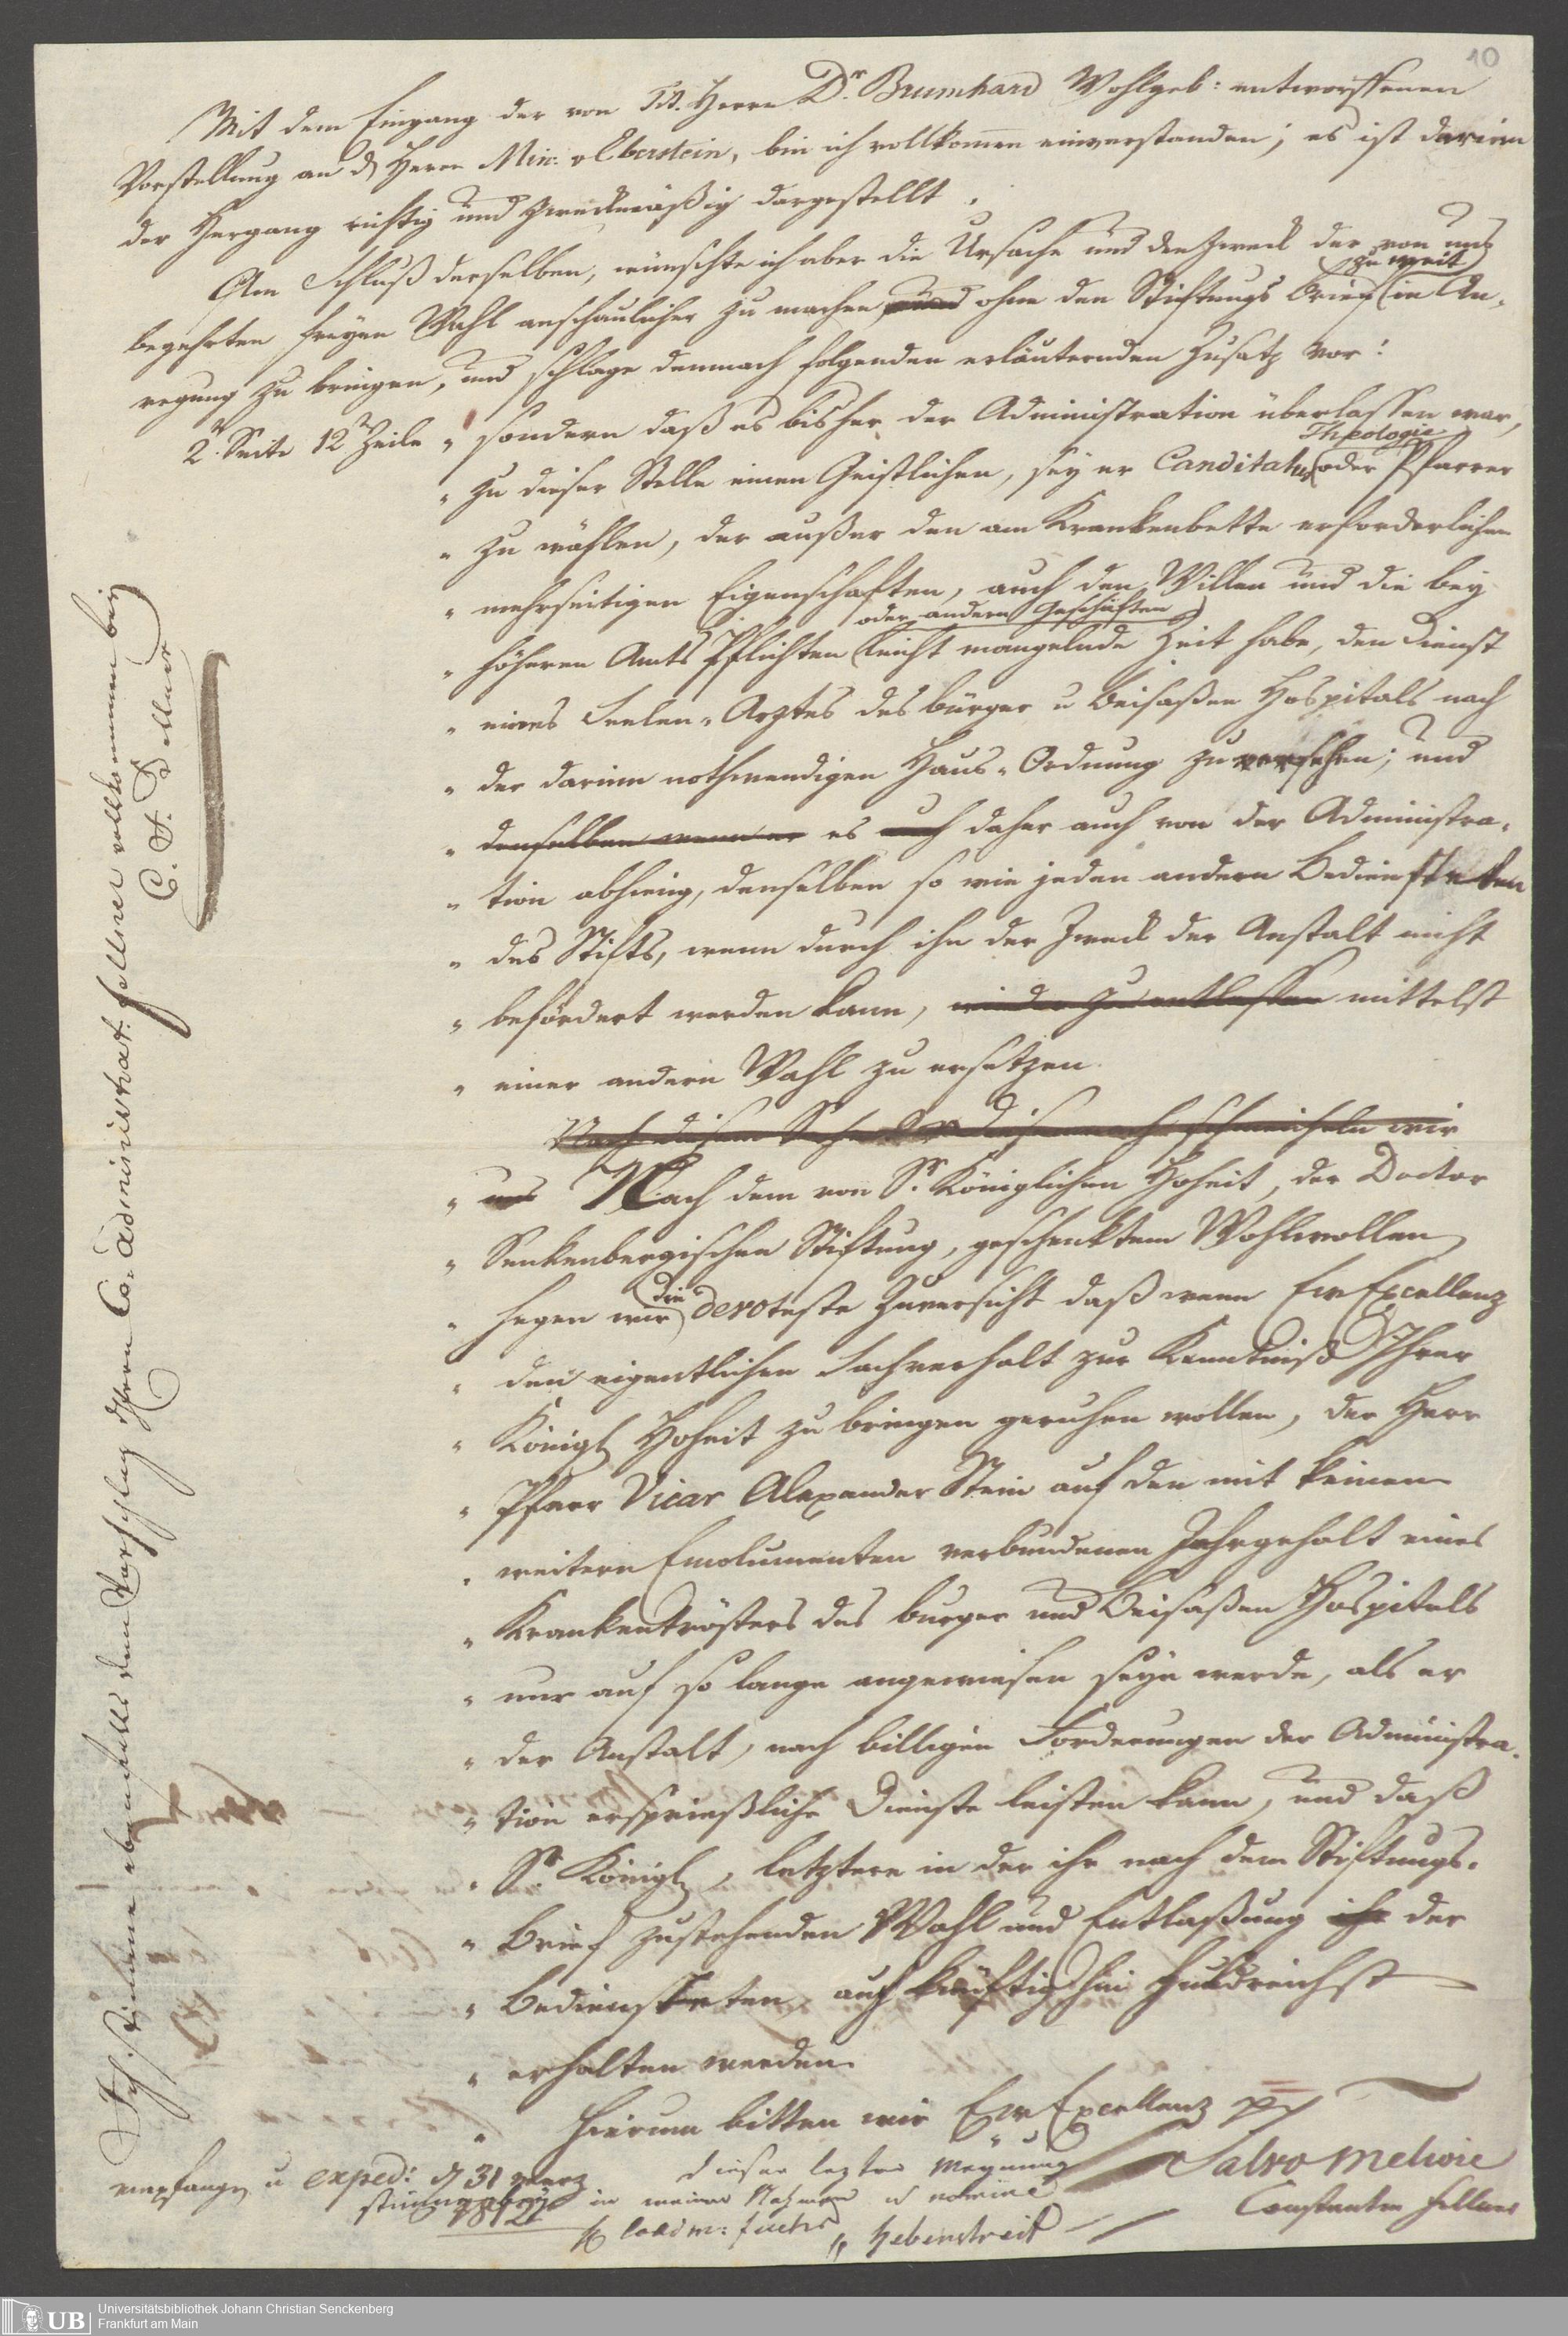 10
Mit dem Eingang der von Tit. Herrn Dr. Brumhard Wohlgeb: entworffenen
Vorstellung an d Herrn Min: v Eberstein, bin ich vollkomen einverstanden; es ist darinn
der Hergang richtig und zweckmäßig dargestellt.
Am Schluß derselben, wünschte ich aber die Ursache und den Zweck der von uns
begehrten freyen Wahl anschaulicher zu machen, und ohne den Stiftungs Brief (zu weit) in An-
regung zu bringen, und schlage demnach folgenden erläuternden Zusatz vor:
2r. Seite 12r Zeile " sondern daß es bisher der Administration überlassen war,
" zu dieser Stelle einen Geistlichen, sey er Canditatus Theologie oder Pfarrer
" zu wählen, der außer den am Krankenbette erforderlichen
" mehrseitigen Eigenschaften, auch den Willen und die bey
" höheren Amts Pflichten oder andern Geschäften leicht mangelnde Zeit habe, den Dienst
" eines Seelen-Arztes des bürger u Beisaßen Hospitals nach
" der darinn nothwendigen Haus-Ordnung zu versehen; und
" denselben wenn er es auch daher auch von der Administra-
" tion abhieng, denselben so wie jeden andern Bediensteten
" des Stifts, wenn durch ihn der Zweck der Anstalt nicht
" befördert werden kann, wieder zu entlassen mittelst
" einer andern Wahl zu ersetzen.
schmeicheln wir
" uns Nach dem von Sr. Königlichen Hoheit, der Doctor
" Senkenbergischen Stiftung, geschenktem Wohlwollen
" hegen wir die devoteste Zuversicht daß wenn Ew Excellenz
" den eigentlichen Sachverhalt zur Kenntniß Ihrer
" Königl Hoheit zu bringen geruhen wollen, der Herr
" Pfarr Vicar Alexander Stein auf den mit keinen
" weitern Emolumenten verbundenen Jahrgehalt eines
" Krankentrösters des burger und Beisaßen Hospitals
" nur auf so lange angewiesen seyn werde, als er
" der Anstalt, nach billigen Forderungen der Administra-
" tion ersprießliche Dienste leisten kann, und daß
" Sr. Königl, letztere in der ihr nach dem Stiftungs-
" Brief zustehenden Wahl und Entlaßung ihr der
" Bediensteten, auch künftighin huldreichst
" erhalten werden.
" Hierum bitten wir Ew Excellenz pp
Salvo meliori
Constantin Fellner
dieser lezten Meynung
in meinem Nahmen et nomine
Hebenstreit
empfangen u exped: d 31 Merz
1812
Ich stimme ebenfalls dem Vorschlag Herrn Co: Administrat: Fellner vollkommen bei
C. F. Fellner
UB Universitätsbibliothek Johann Christian Senckenberg
Frankfurt am Main